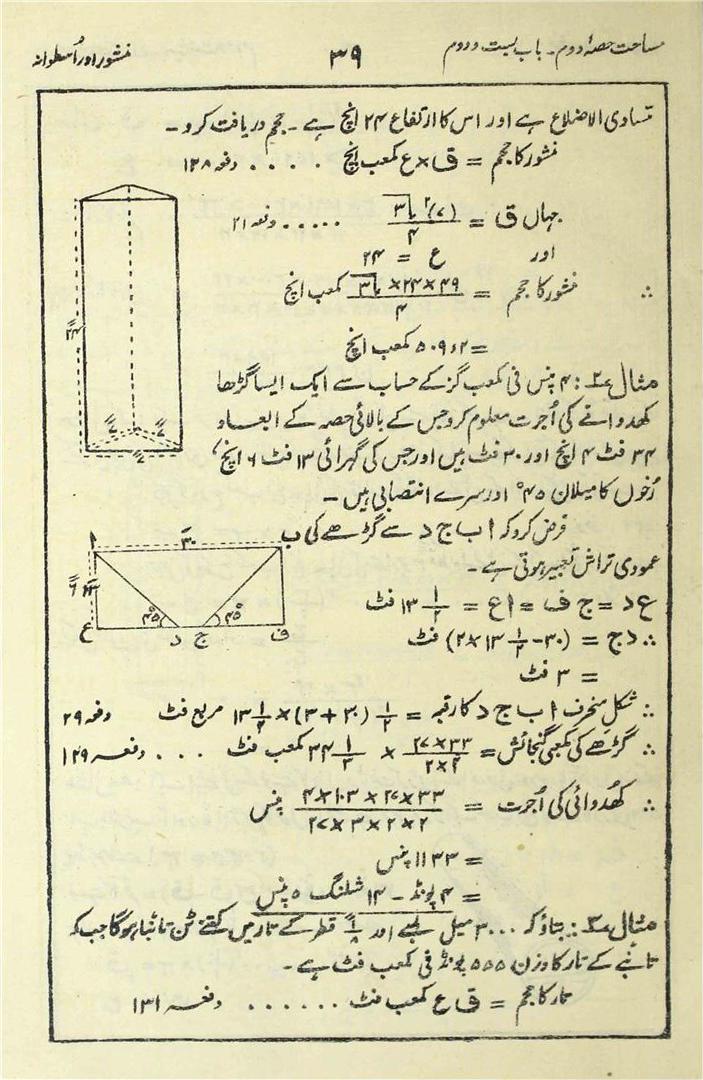 مساحت حصۂ دوم۔ باب بست و دوم ۳۹ منشور اور اُسطوانہ
تساوی الاضلاع ہے اور اس کا ارتفاع ۲۴ انچ ہے۔ حجم دریافت کرو۔
منشور کا حجم = ق × ع مکعب انچ . . . . . دفعہ ۱۲۸
جہاں ق = (۷)۲ √۳ / ۴ . . . . . دفعہ ۲۱
اور ع = ۲۴
∴ منشور کا حجم = ۴۹×۲۴×√۳ / ۴ مکعب انچ
= ۵۰۹٫۲ مکعب انچ
۲۴ً
۷ً ۷ً
۷ً
مثال ۲ : ۴ پنس فی مکعب گز کے حساب سے ایک ایسا گڑھا
کھدوانے کی اُجرت معلوم کرو جس کے بالائی حصہ کے ابعاد
۳۴ فٹ ۴ انچ اور ۳۰ فٹ ہیں اور جس کی گہرائی ۱۳ فٹ ۶ انچ،
رُخوں کا میلان ۴۵° اور سرے انتصابی ہیں۔
فرض کرو کہ ا ب ج د سے گڑھے کی
عمودی تراش تعبیر ہوتی ہے۔
ا ۳۰ ب
۱۳ ۶ً
۴۵° ۴۵°
ع د ج ف
ع د = ج ف = ا ع = ۱۳ ۱/۲ فٹ
∴ د ج = (۳۰ - ۱۳ ۱/۲ × ۲) فٹ
= ۳ فٹ
∴ شکل منحرف ا ب ج د کا رقبہ = ۱/۲ (۳۰ + ۳) × ۱۳ ۱/۲ مربع فٹ دفعہ ۲۹
∴ گڑھے کی مکعبی گنجائش = ۳۳×۲۷ / ۲×۲ × ۳۴ ۱/۳ مکعب فٹ . . . دفعہ ۱۲۹
∴ کھُدوائی کی اُجرت = ۳۳×۲۷×۱۰۳×۴ / ۲×۲×۳×۲۷ پنس
= ۱۱۳۳ پنس
= ۴ پونڈ ۔ ۱۴ شلنگ ۵ پنس
مثال ۳ : بتاؤ کہ ۳۰۰۰ میل لمبے اور ۱/۸ً قطر کے تار میں کتنے ٹن تانبا ہوگا جب کہ
تانبے کے تار کا وزن ۵۵۵ پونڈ فی مکعب فٹ ہے۔
تار کا حجم = ق ع مکعب فٹ . . . . . . دفعہ ۱۳۱